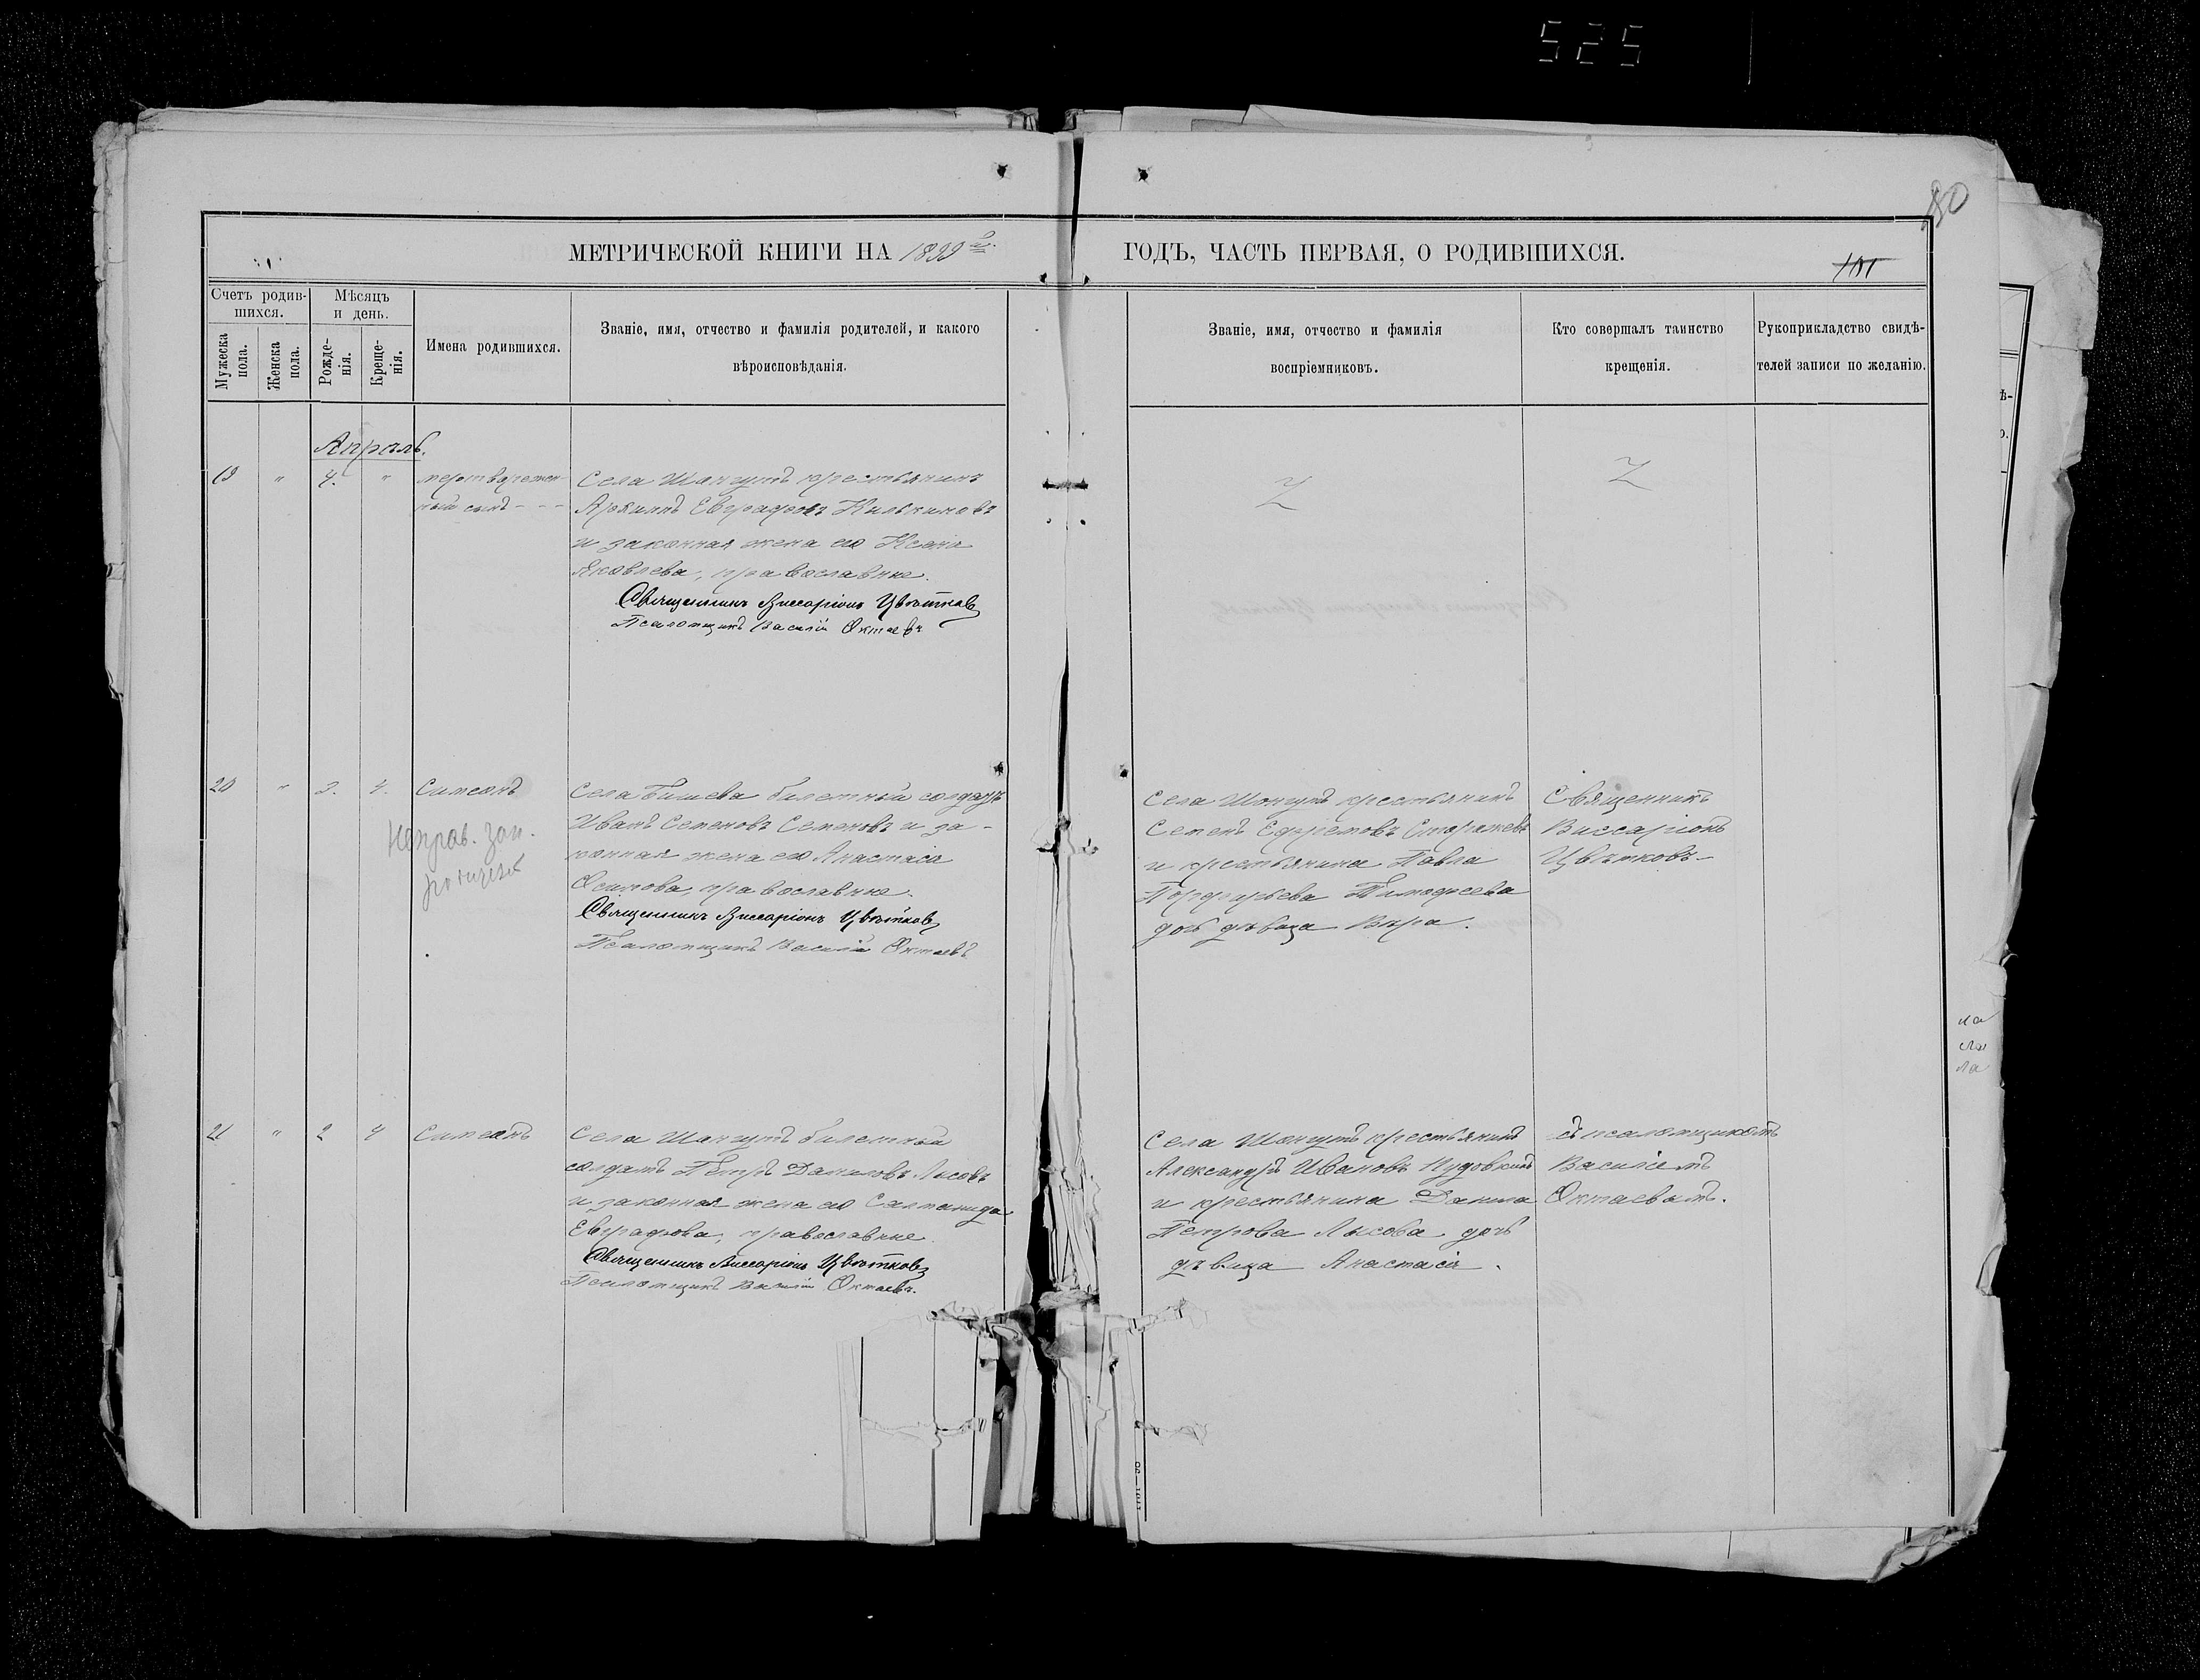 525
80
МЕТРИЧЕСКОЙ КНИГИ НА 1899 й. ГОДЪ, ЧАСТЬ ПЕРВАЯ, О РОДИВШИХСЯ.
101
Счетъ родив-
шихся.
Мѣсяцъ
и день.
Мужеска
пола.
Женска
пола.
Рожде-
нія.
Креще-
нія.
Имена родившихся.
Званіе, имя, отчество и фамилія родителей, и какого
вѣроисповѣданія.
Званіе, имя, отчество и фамилія
воспріемниковъ.
Кто совершалъ таинство
крещенія.
Рукоприкладство свидѣ-
телей записи по желанію.
Апрѣль.
19 " 4. "
мертворожден-
ный сынъ - - -
Села Шонгутъ крестьянинъ
Евграфовъ
и законная жена его Ксенія
Яковлева, православные.
Священникъ Виссаріонъ Цвѣтковъ
Псаломщикъ Василій Октаевъ
Z
Z
20 " 3. 4. Симеонъ
Села Бишева билетный солдатъ
Иванъ Семеновъ Семеновъ и за-
конная жена его Анастасія
Осипова, православные.
Священникъ Виссаріонъ Цвѣтковъ
Псаломщикъ Василій Октаевъ
Села Шонгутъ крестьянинъ
Семенъ Ефремовъ Сторожевъ
и крестьянина Павла
Порфирьева Тимофеева
дочь дѣвица Вѣра.
Священникъ
Виссаріонъ
Цвѣтковъ
21 " 2 4 Симеонъ
Села Шонгутъ билетный
солдатъ Петръ Даниловъ Лысовъ
и законная жена его Саломонида
Евграфова, православные.
Священникъ Виссаріонъ Цвѣтковъ
Псаломщикъ Василій Октаевъ.
Села Шонгутъ крестьянинъ
Александръ Ивановъ Пудовкинъ
и крестьянина Данила
Петрова Лысова дочь
дѣвица Анастасія.
съ псаломщикомъ
Василіемъ
Октаевымъ.